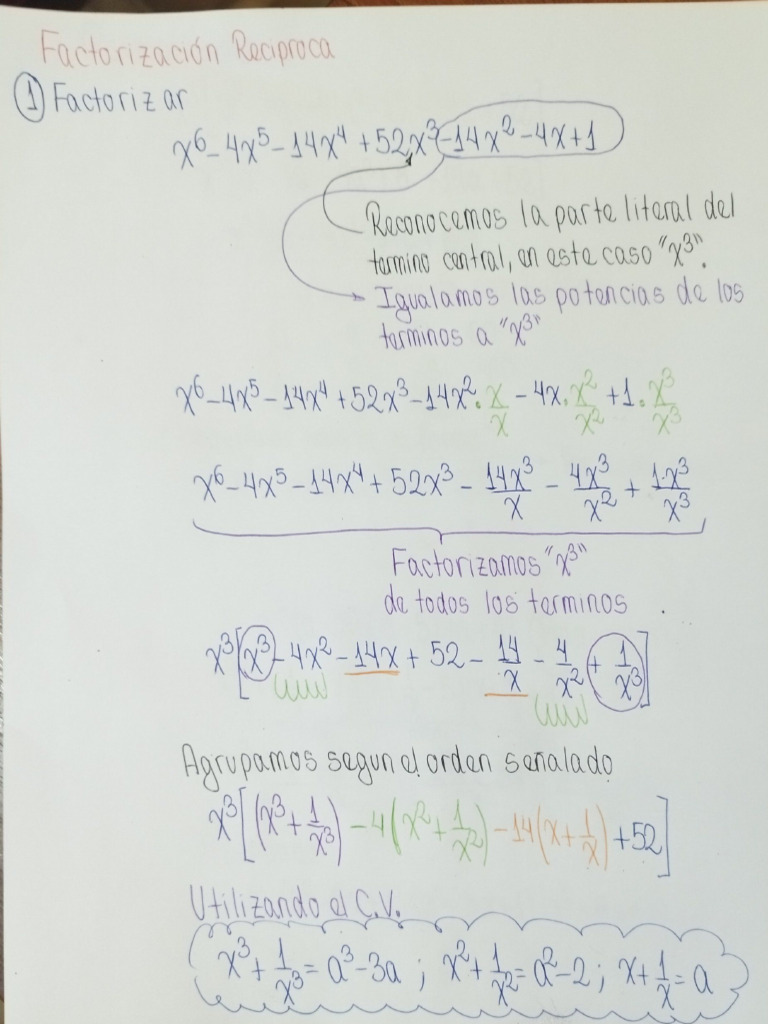 Factorización Reciproca
① Factorizar
x⁶ - 4x⁵ - 14x⁴ + 52x³ - 14x² - 4x + 1
Reconocemos la parte literal del
termino central, en este caso "x³".
Igualamos las potencias de los
terminos a "x³"
x⁶ - 4x⁵ - 14x⁴ + 52x³ - 14x² · x/x - 4x · x²/x² + 1 · x³/x³
x⁶ - 4x⁵ - 14x⁴ + 52x³ - 14x³/x - 4x³/x² + 1·x³/x³
Factorizamos "x³"
de todos los terminos
x³[x³ - 4x² - 14x + 52 - 14/x - 4/x² + 1/x³]
Agrupamos segun el orden señalado
x³[(x³ + 1/x³) - 4(x² + 1/x²) - 14(x + 1/x) + 52]
Utilizando el C.V.
x³ + 1/x³ = a³ - 3a ; x² + 1/x² = a² - 2 ; x + 1/x = a